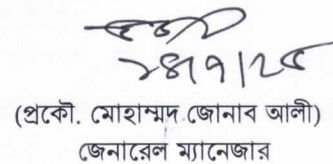 ২৪/৭/২৫
(প্রকৌ. মোহাম্মদ জোনাব আলী)
জেনারেল ম্যানেজার